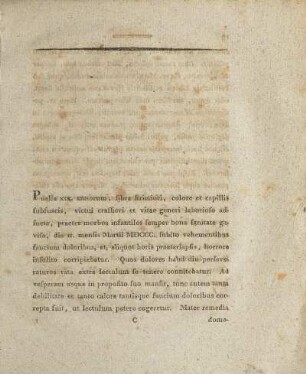 Puella XIX. annorum, fibra
colore et capillis
subfuscis, victui crassiori et vitae generi laborioso ad
sueta, praeter morbos infantiles semper bona sanitate ga
visa, die mensis Martii MDCCC. subito vehementibus
faucium doloribus, et, aliquot horis praeterlapsis, horrore
insolito corripiebatur. Quos dolores
extra lectulum se tenere connitebatur. Ad
vesperam usque in proposito suo mansit, tunc autem tanta
debilitate et tanto calore tantisque faucium doloribus cor
repta fuit, ut lectulum petere cogeretur. Mater remedia
C domo-